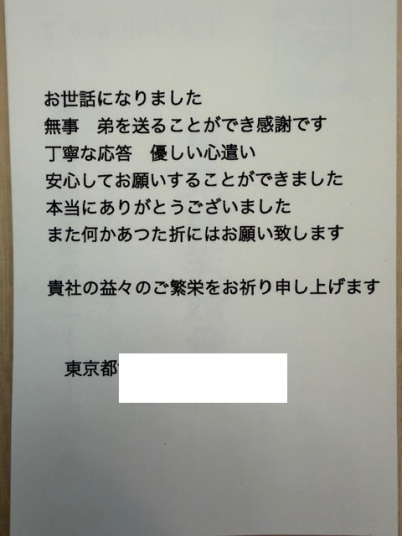 お世話になりました
無事　弟を送ることができ感謝です
丁寧な応答　優しい心遣い
安心してお願いすることができました
本当にありがとうございました
また何かあつた折にはお願い致します
貴社の益々のご繁栄をお祈り申し上げます
東京都